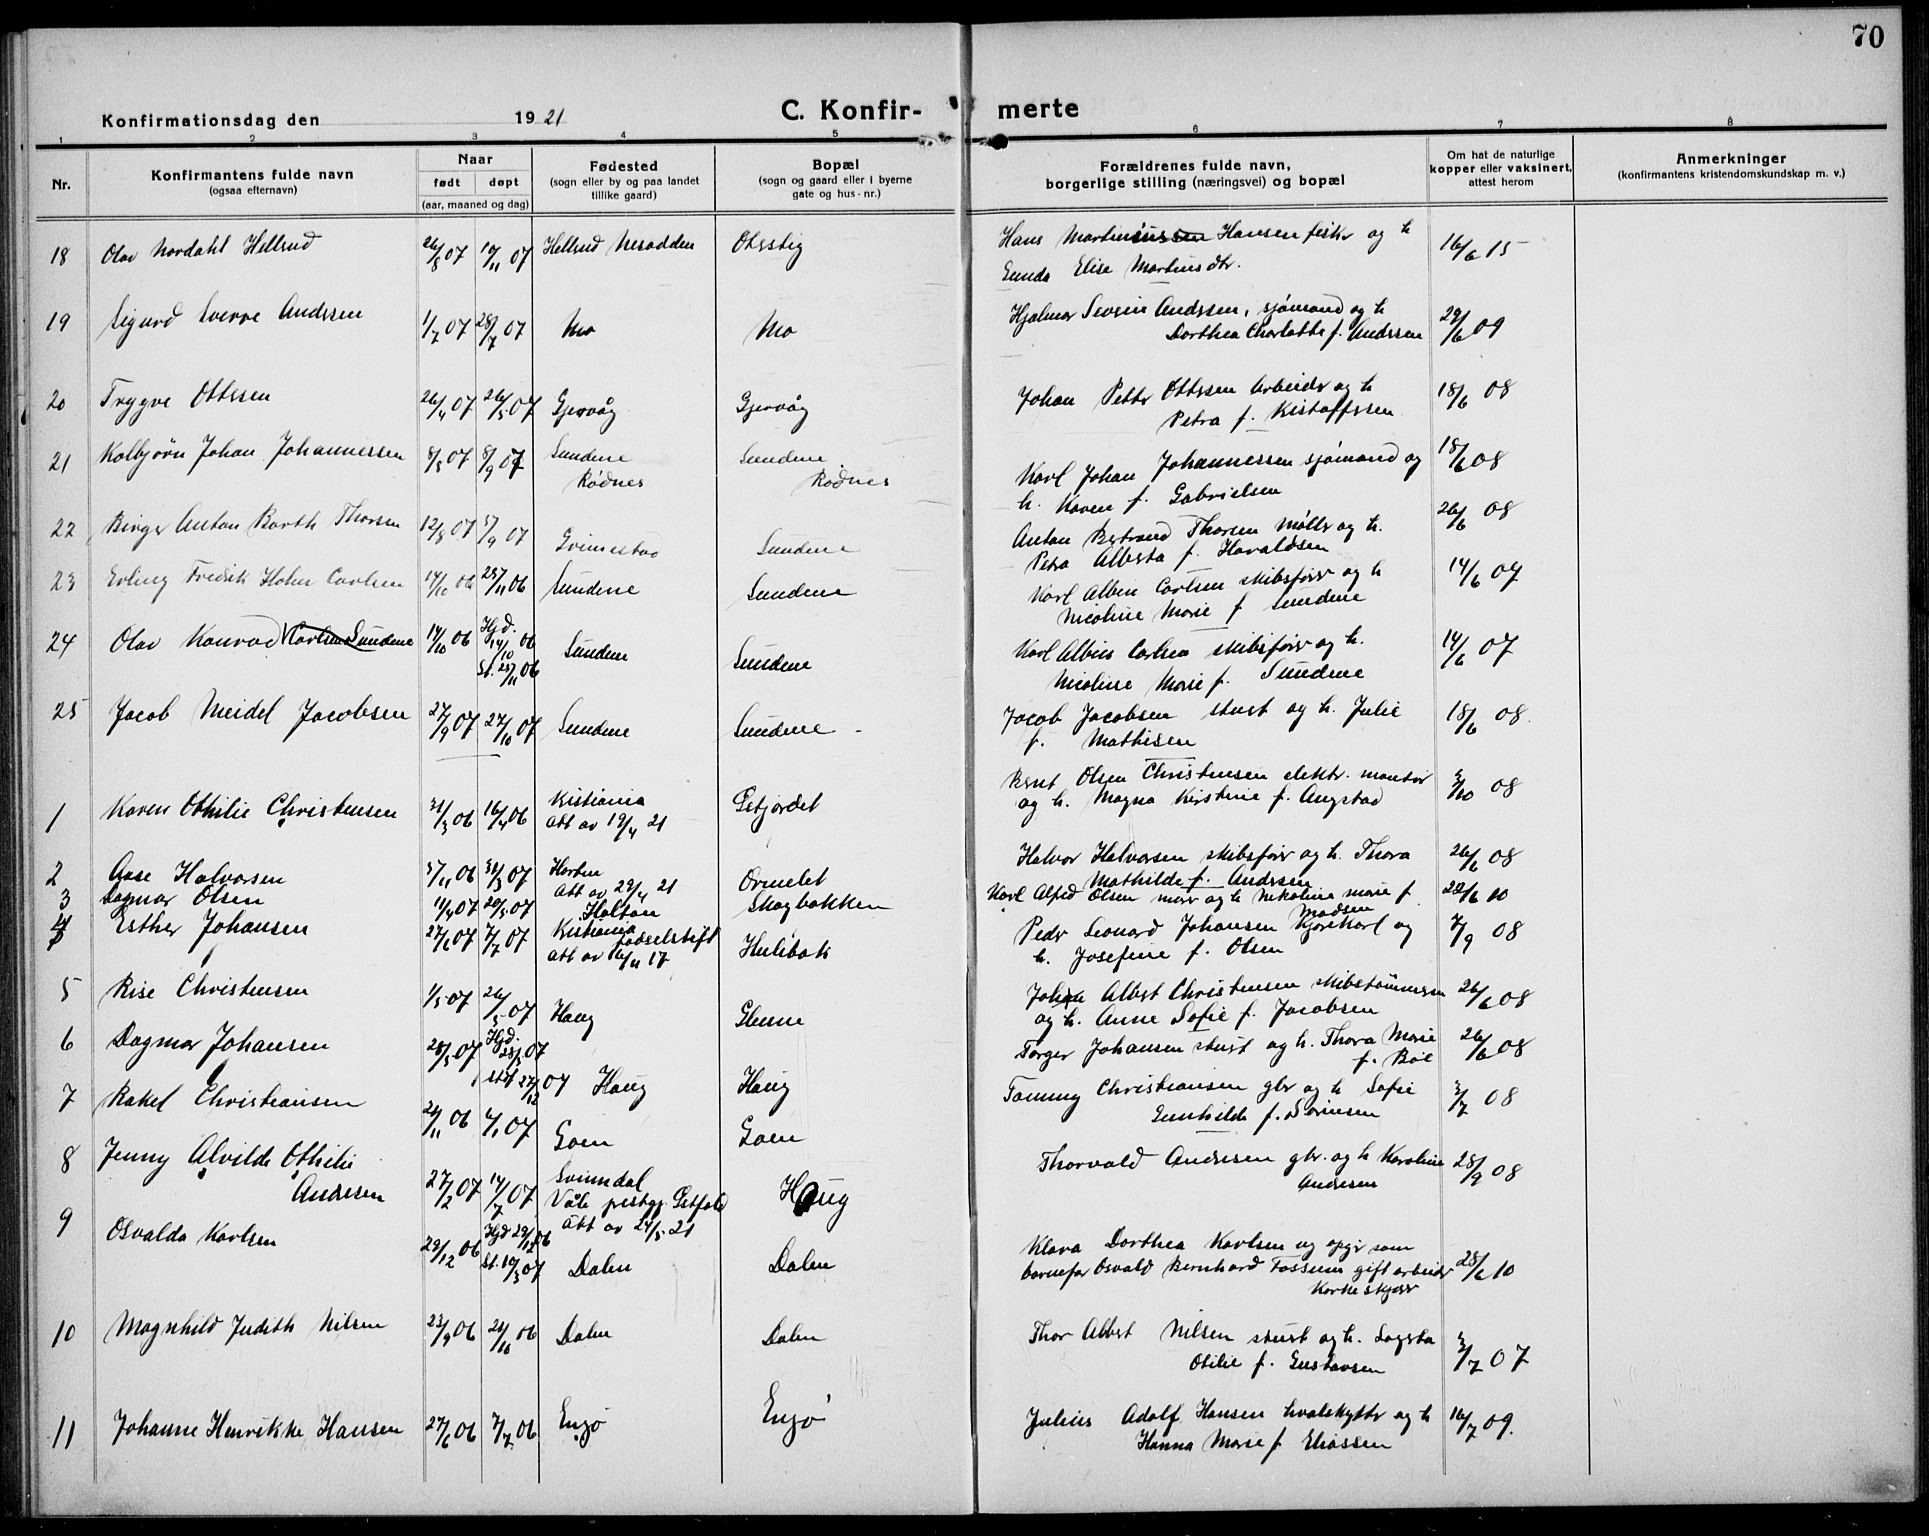 70
Konfirmationsdag den 1921
C. Konfir- merte
1 2 3 4 5 6 7 8
Nr.
Konfirmantens fulde navn
(ogsaa efternavn)
Naar
født døpt
(aar, maaned og dag)
Fødested
(sogn eller by og paa landet
tillike gaard)
Bopæl
(sogn og gaard eller i byerne
gate og hus-nr.)
Forældrenes fulde navn,
borgerlige stilling (næringsvei) og bopæl
Om hat de naturlige
kopper eller vaksinert,
attest herom
Anmerkninger
(konfirmantens kristendomskundskap m. v.)
18 Olav Nordahl Hellrud 26/8 07 19/11 07 Hellrud Nesodden Hans Hansen fisker og h 16/6 15
Elise Martinsdtr.
19 Sigurd Sverre Andersen 1/7 07 28/7 07 Mo Mo Hjalmar Severin Andersen, sjømand og h 29/6 09
Dorthea Charlotte f. Andersen
20 Trygve Ottesen 26/4 07 26/5 07 Gjervåg Gjervåg Johan Petter Ottesen Arbeider og h 18/6 08
Petra f. Kristoffersen
21 Kolbjørn Johan Johannessen 8/8 07 8/9 07 Sundene Sundene Karl Johan Johannessen sjømand og 18/6 08
Rødnes Rødnes h. Karen f. Gabrielsen
22 Birger Anton Barth Thorsen 12/8 07 /9 07 Grimestad Sundene Anton Bertrand Thorsen Møller og h. 26/6 08
Petra Alberta f. Haraldsen
23 Erling Fredrik Holm Carlsen 14/10 06 25/11 06 Sundene Sundene Karl Albin Carlsen skibsfører og h 14/6 07
Nicoline Marie f Sundene
24 Olav Konrad Carlsen Sundene 14/10 06 Hjd. 14/10 06 Sundene Sundene Karl Albin Carlsen skibsfører og h. 14/6 07
St. 25/11 06 Nicoline Marie f. Sundene
25 Jacob Meidel Jacobsen 27/9 07 27/10 07 Sundene Sundene Jacob Jacobsen stuert og h. Julie 18/6 08
f. Mathisen
1 Karen Othilie Christensen 31/3 06 16/4 06 Kristiania Bernt Olsen Christensen elektr. montør /10 08
att av 19/4 21 og h. Magna Kirstine f. Angstad
2 Aase Halvorsen /11 06 31/3 07 Horten Ormelet Halvor Halvorsen skibsfører og h. Thora 26/6 08
Att av 29/4 21 Mathilde f. Andersen
3 Dagmar Olsen 11/4 07 20/5 07 Holtan Skogbakken Karl Alfred Olsen murer og h Nikoline Marie f 22/6 10
Madsen
4 Esther Johansen 27/6 07 7/7 07 Kristiania Hulebak Peder Leonard Johansen Kjørekarl og 7/9 08
fødselstift
att av 16/11 17 h. Josefine f. Olsen
5 Rise Christensen 1/5 07 26/5 07 Haug Glenne Johan Albert Christensen skibstømmerm 26/6 08
og h. Anne Sofie f. Jacobsen
6 Dagmar Johansen 28/5 07 Hjd. 28/5 07 Haug Haug Torger Johansen stuert og h. Thora Marie 26/6 08
stdf 27/12 07 f. Bøe
7 Rakel Christiansen 24/11 06 /1 07 Goen Goen Tommy Christiansen gbr og h Sofie 3/7 08
Gunhilde f. Sørensen
8 Jenny Alvilde Othilie 27/2 07 14/7 07 Svinndal Haug Thorvald Andersen gbr. og h Karoline 28/9 08
Andersen Våle prestgj. Andersen
att av 24/5 21
9 Osvalda Karlsen 29/12 06 Hjd 29/12 06 Dalen Dalen Klara Dorthea Karlsen og opgir som 28/6 10
St. 10/3 07 barnefar Osvald Bernhard Fossum gift arbeider
10 Magnhild Judith Nilsen 23/9 06 21/10 06 Dalen Dalen Thor Albert Nilsen stuert og h. Dagsta 3/7 07
Otilie f. Gustavsen
11 Johanne Henrikke Hansen 27/6 06 7/7 06 Engø Engø Julius Adolf Hansen hvalskytter og h 16/7 09.
Hanna Marie f. Eliassen